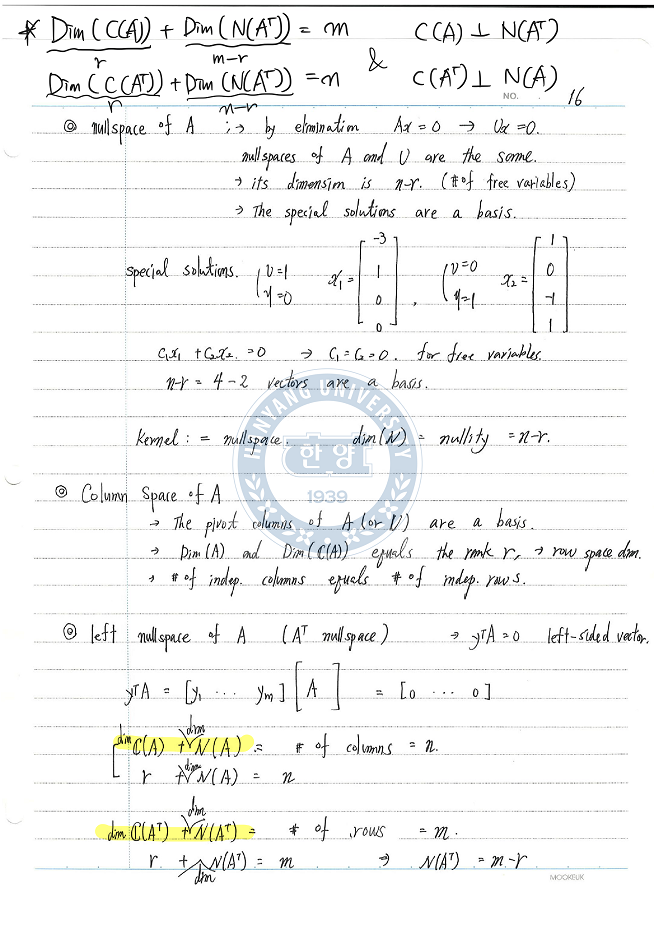 * Dim(C(A)) + Dim(N(Aᵀ)) = m C(A) ⊥ N(Aᵀ)
r m-r &
Dim(C(Aᵀ)) + Dim(N(Aᵀ)) = n C(Aᵀ) ⊥ N(A)
r n-r
NO. 16
◎ nullspace of A ; → by elimination Ax = 0 → Ux = 0.
nullspaces of A and U are the same.
→ its dimension is n-r. (# of free variables)
→ The special solutions are a basis.
special solutions. { v=1 y=0 x₁ = [ -3 1 0 0 ] , { v=0 y=1 x₂ = [ 1 0 -1 1 ]
c₁x₁ + c₂x₂ = 0 → c₁ = c₂ = 0. for free variables.
n-r = 4-2 vectors are a basis.
kernel : = nullspace. dim(N) = nullity = n-r.
HANYANG UNIVERSITY
한양
1939
◎ Column Space of A
→ The pivot columns of A (or U) are a basis.
→ Dim(A) and Dim(C(A)) equals the rank r, → row space dim.
→ # of indep. columns equals # of indep. rows.
◎ left nullspace of A (Aᵀ nullspace) → yᵀA = 0 left-sided vector.
yᵀA = [y₁ ... yₘ] [ A ] = [0 ... 0]
dim C(A) + dim N(A) = # of columns = n.
r + dim N(A) = n
dim C(Aᵀ) + dim N(Aᵀ) = # of rows = m.
r + dim N(Aᵀ) = m ⇒ N(Aᵀ) = m-r
MOOKEUK